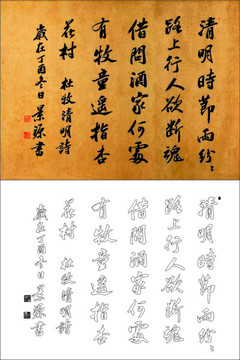 清明時節雨紛〻
路上行人欲斷魂
借問酒家何處
有牧童遙指杏
花村 杜牧清明詩
歲在丁酉冬日景源書
清明時節雨紛〻
路上行人欲斷魂
借問酒家何處
有牧童遙指杏
花村 杜牧清明詩
歲在丁酉冬日景源書